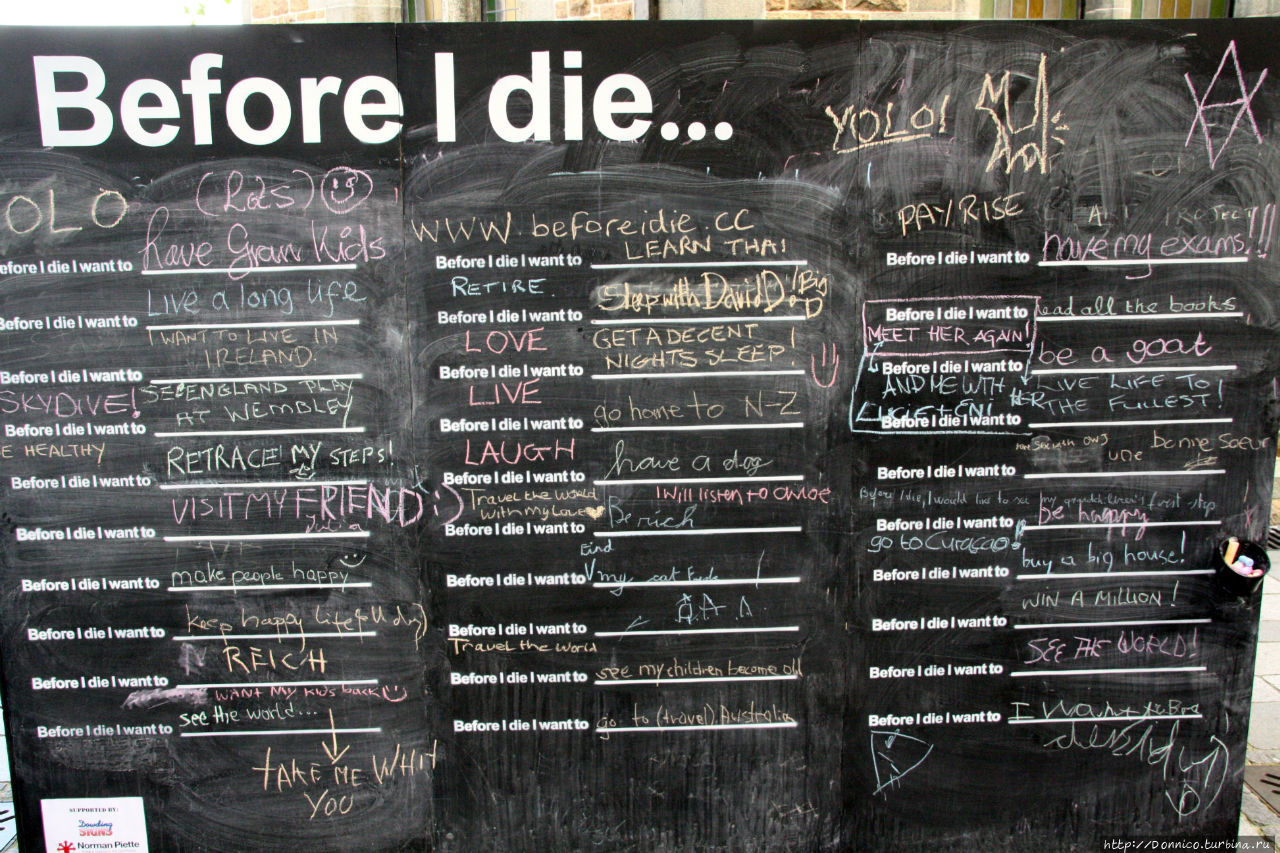 Before I die...
YOLO!
OLO
(Lots)
Before I die I want to have Gran Kids
LIVE a long life
Before I die I want to
I WANT TO LIVE IN
IRELAND.
Before I die I want to
SKYDIVE!
SEE ENGLAND PLAY
AT WEMBLEY
Before I die I want to
E HEALTHY
RETRACE! MY STEPS!
Before I die I want to
VISIT MY FRIEND :)
Before I die I want to
Before I die I want to make people happy
keep happy life
Before I die I want to
REICH
Before I die I want to
WANT MY KIDS back
see the world...
Before I die I want to
TAKE ME WHIT
YOU
SUPPORTED BY:
Dowding
SIGNS
Norman Piette
WWW.beforeidie.cc
LEARN THAI
Before I die I want to
RETIRE.
Sleep with David D! Big
D
Before I die I want to
LOVE
GET A DECENT
NIGHTS SLEEP!
Before I die I want to
LIVE
go home to N-Z
Before I die I want to
LAUGH
have a dog
Before I die I want to
Travel the World
With my Love
I will listen to chloe
Be rich
Before I die I want to
Find
Before I die I want to my cat
Before I die I want to
Travel the World
Before I die I want to see my children become old
Before I die I want to go to (travel) Australia
PAY RISE
have my exams!!!
Before I die I want to
Before I die I want to read all the books
MEET HER AGAIN!
be a goat
Before I die I want to
AND ME WITH HER
LIVE LIFE TO
THE FULLEST!
Before I die I want to
une bonne soeur
Before I die I want to
Before I die, I would like to see my grandchildren's first step
be happy
Before I die I want to
go to Curaçao!
buy a big house!
Before I die I want to
WIN A MILLION!
Before I die I want to
SEE THE WORLD!
Before I die I want to
Before I die I want to I Want
http://Donnico.turbina.ru